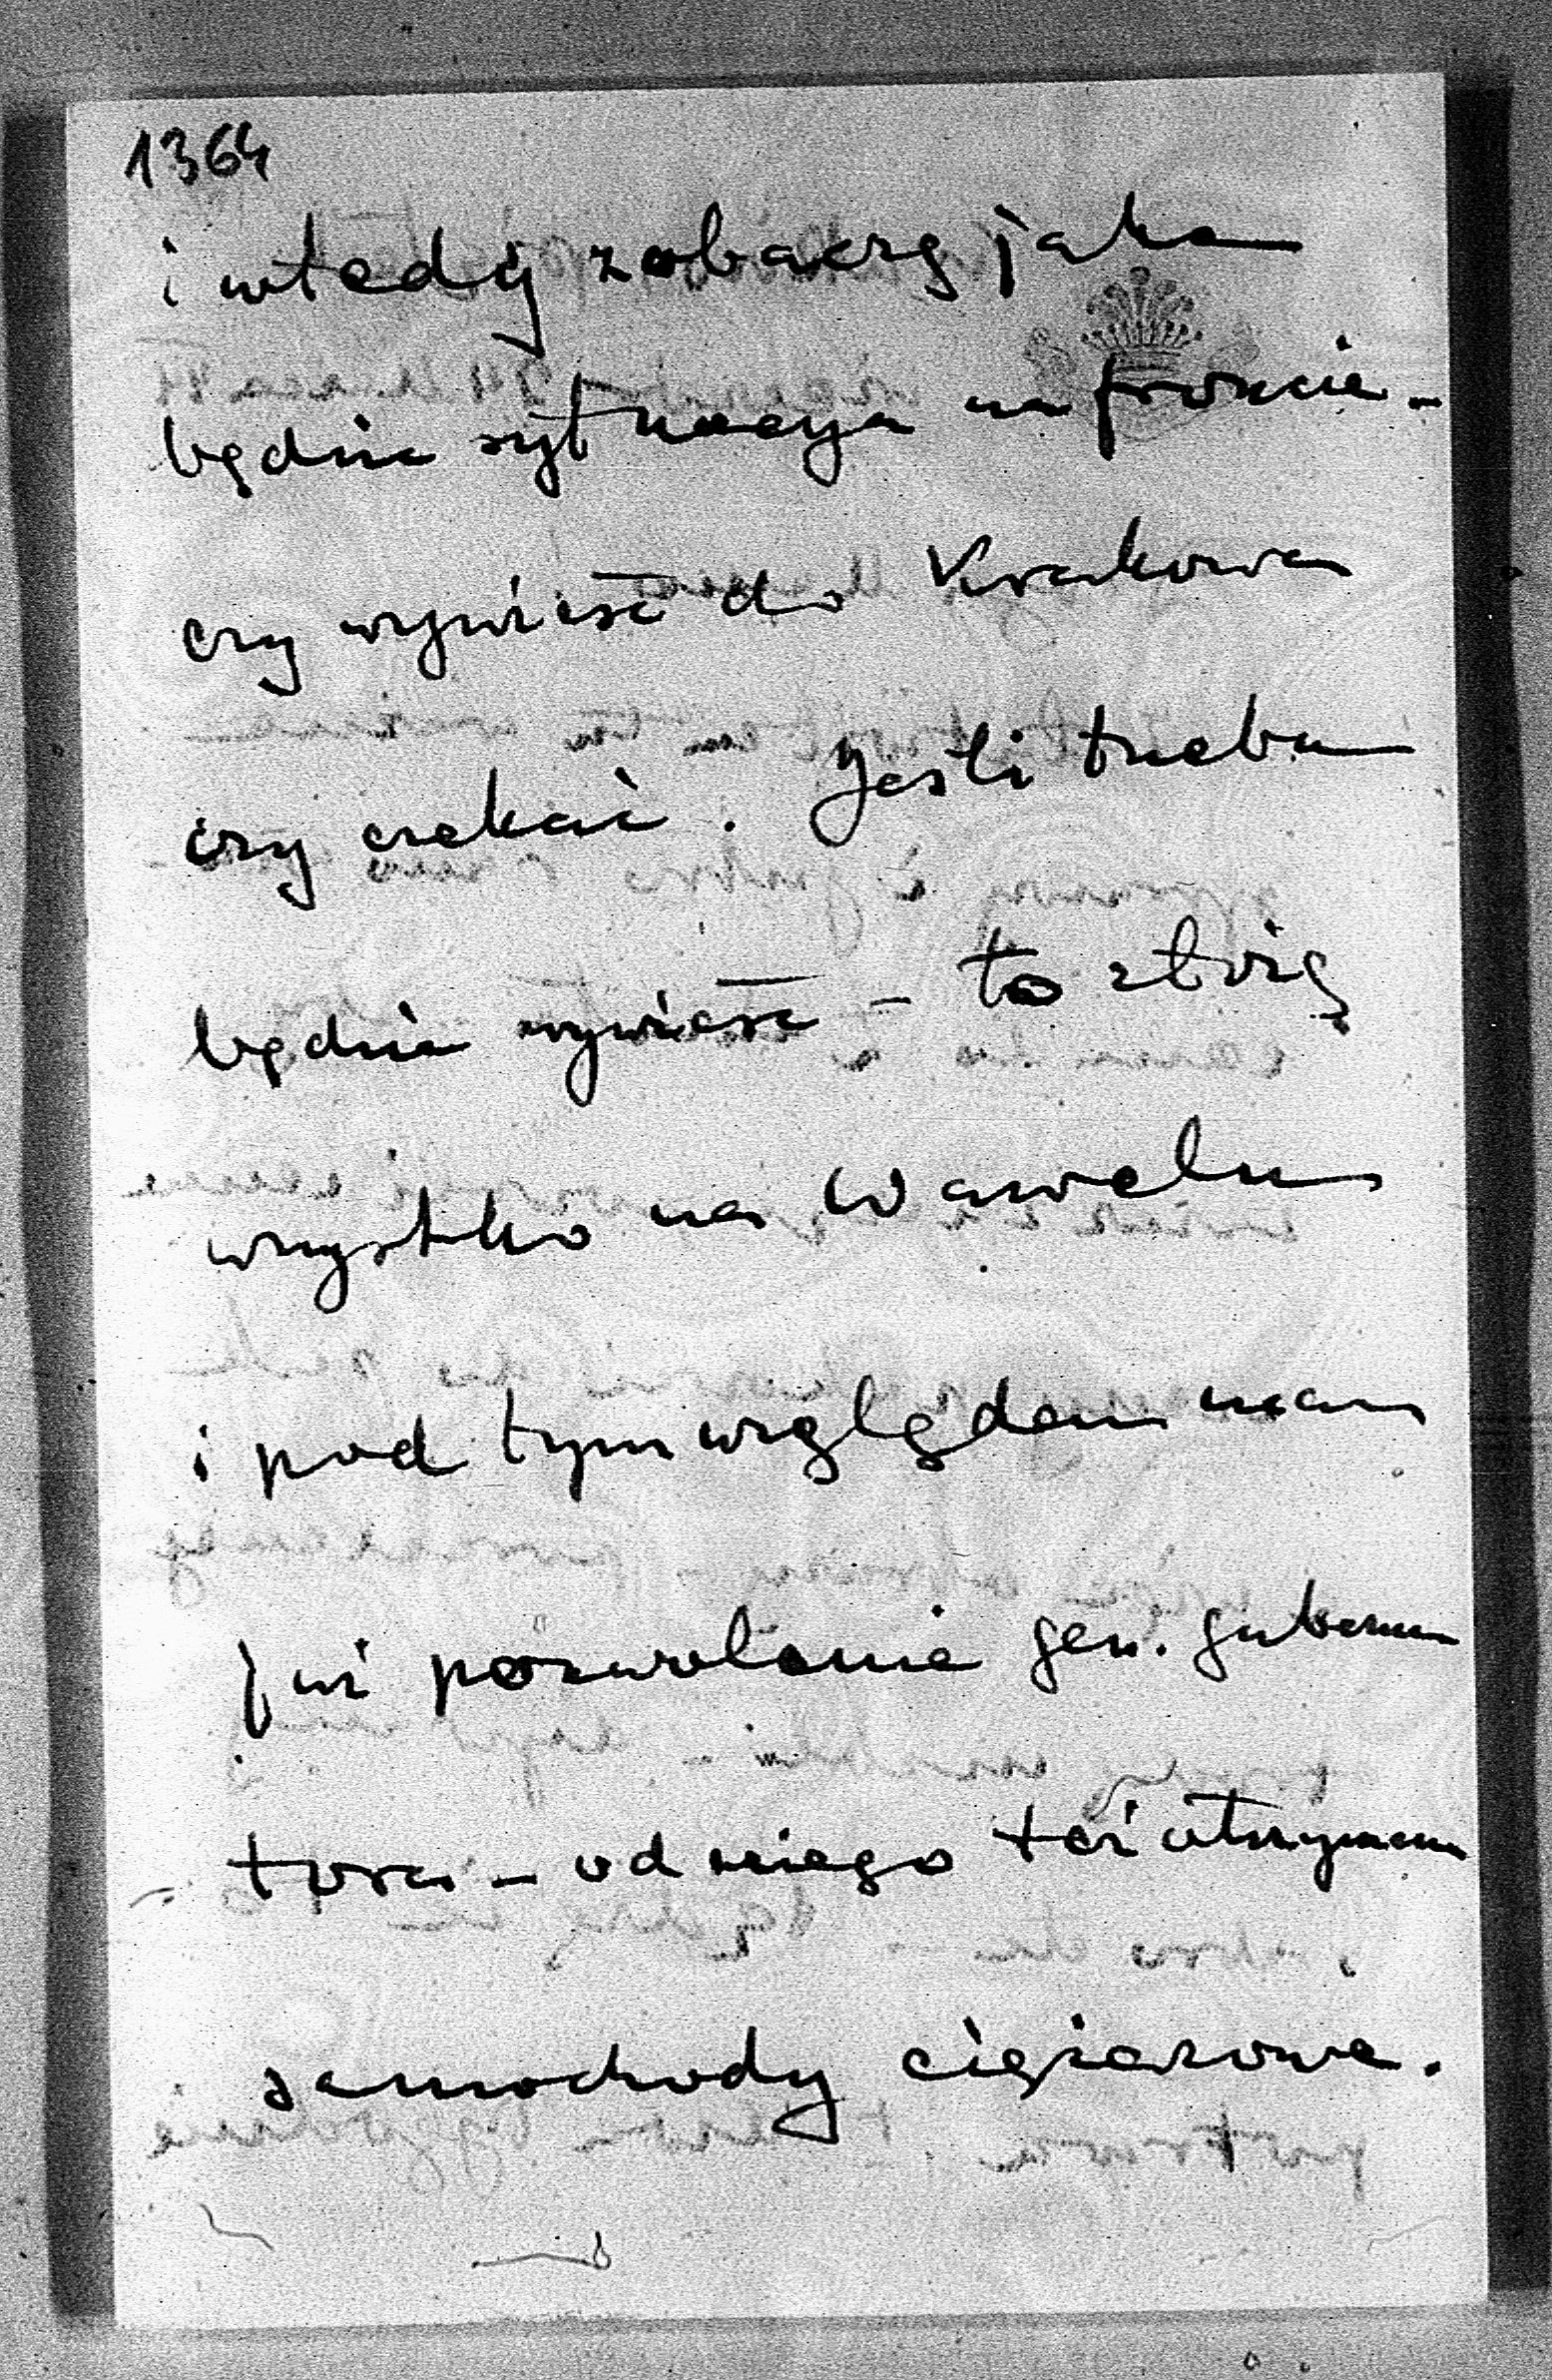 1364
i wtedy zobaczę jaka
będzie sytuacya na froncie -
czy wywieść do Krakowa
czy czekać. Jeśli trzeba
będzie wywieść - to złożę
wszystko na Wawelu
i pod tym względem mam
już pozwolenie gen. guberna
tora - od niego też otrzymam
samochody ciężarowe.